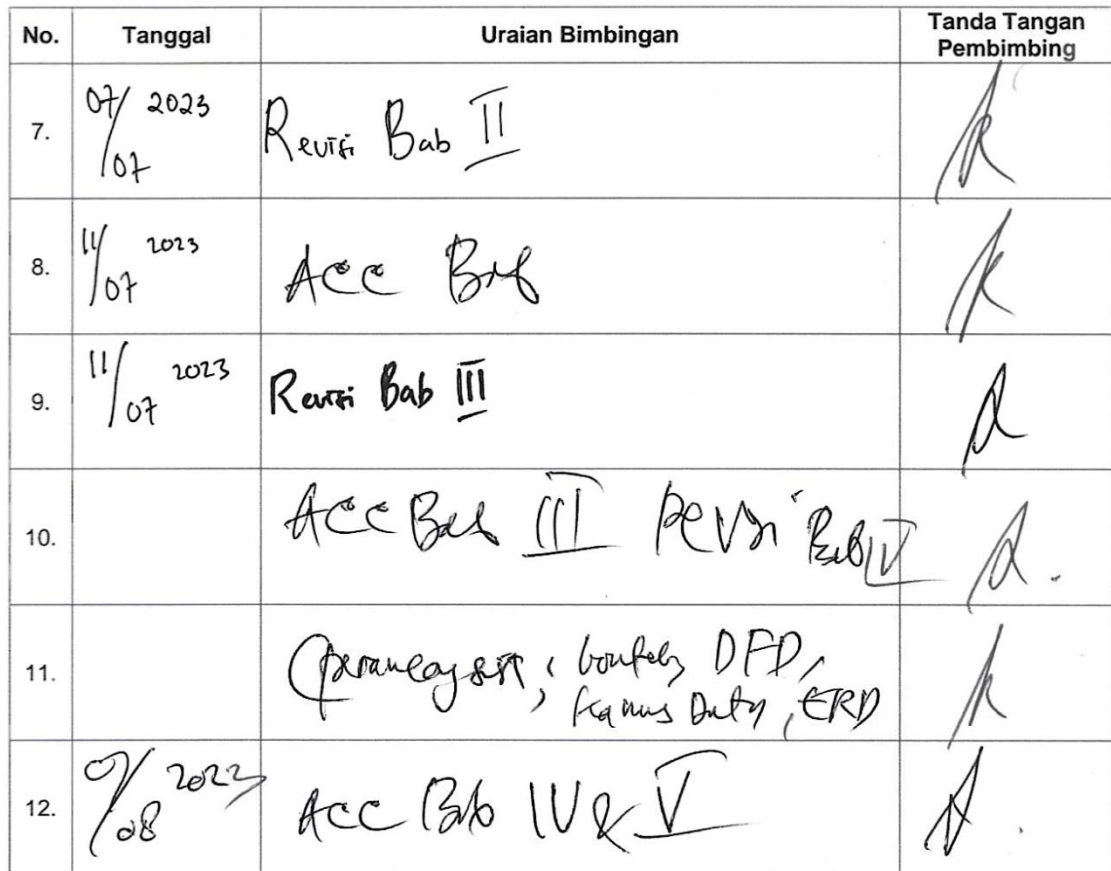 No. Tanggal Uraian Bimbingan Tanda Tangan Pembimbing
7. 07/07 2023 Revisi Bab II
8. 11/07 2023 Acc Bab
9. 11/07 2023 Revisi Bab III
10. Acc Bab III Revisi Bab IV
11. DFD,
ERD
12. /08 2023 Acc Bab IV & V